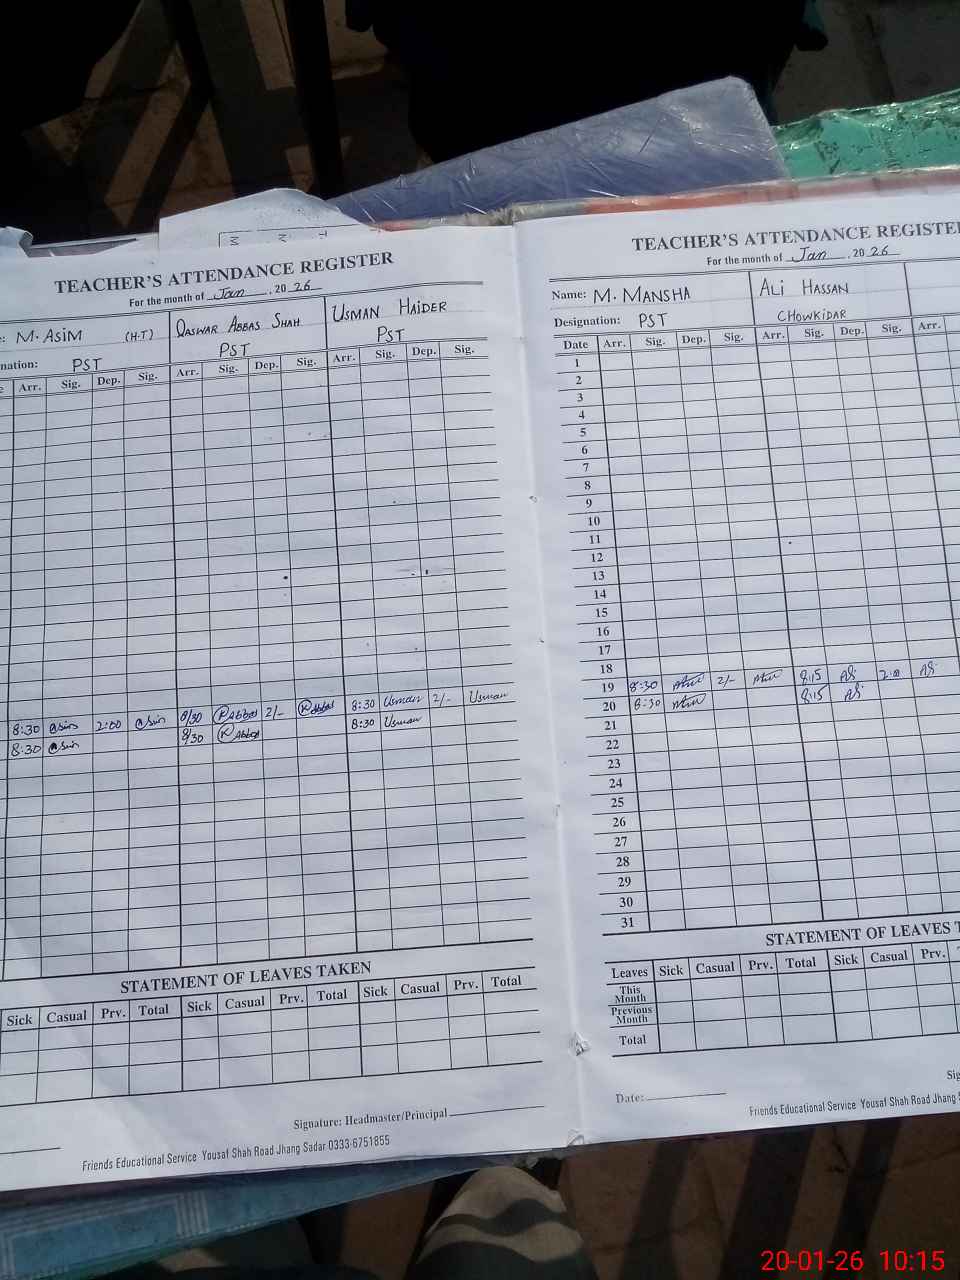 TEACHER'S ATTENDANCE REGISTER
For the month of Jan, 2026
M. ASIM (H.T) QASWAR ABBAS SHAH USMAN HAIDER
nation: PST PST PST
Arr. Sig. Dep. Sig. Arr. Sig. Dep. Sig. Arr. Sig. Dep. Sig.
8:30 Asim 2:00 Asim 8/30 R Abbas 2/- R Abbas 8:30 Usman 2/- Usman
8:30 Asim 8/30 R Abbas 8:30 Usman
STATEMENT OF LEAVES TAKEN
Sick Casual Prv. Total Sick Casual Prv. Total Sick Casual Prv. Total
Signature: Headmaster/Principal
Friends Educational Service Yousaf Shah Road Jhang Sadar 0333-6751855
TEACHER'S ATTENDANCE REGISTE
For the month of Jan, 2026
Name: M. MANSHA ALI HASSAN
Designation: PST CHOWKIDAR
Date Arr. Sig. Dep. Sig. Arr. Sig. Dep. Sig. Arr.
1
2
3
4
5
6
7
8
9
10
11
12
13
14
15
16
17
18
19 8:30 2/- 8:15 AS 2:00 AS
20 8:30 8:15 AS
21
22
23
24
25
26
27
28
29
30
31
STATEMENT OF LEAVES T
Leaves Sick Casual Prv. Total Sick Casual Prv.
This Month
Previous Month
Total
Date:
Sig
Friends Educational Service Yousaf Shah Road Jhang S
20-01-26 10:15